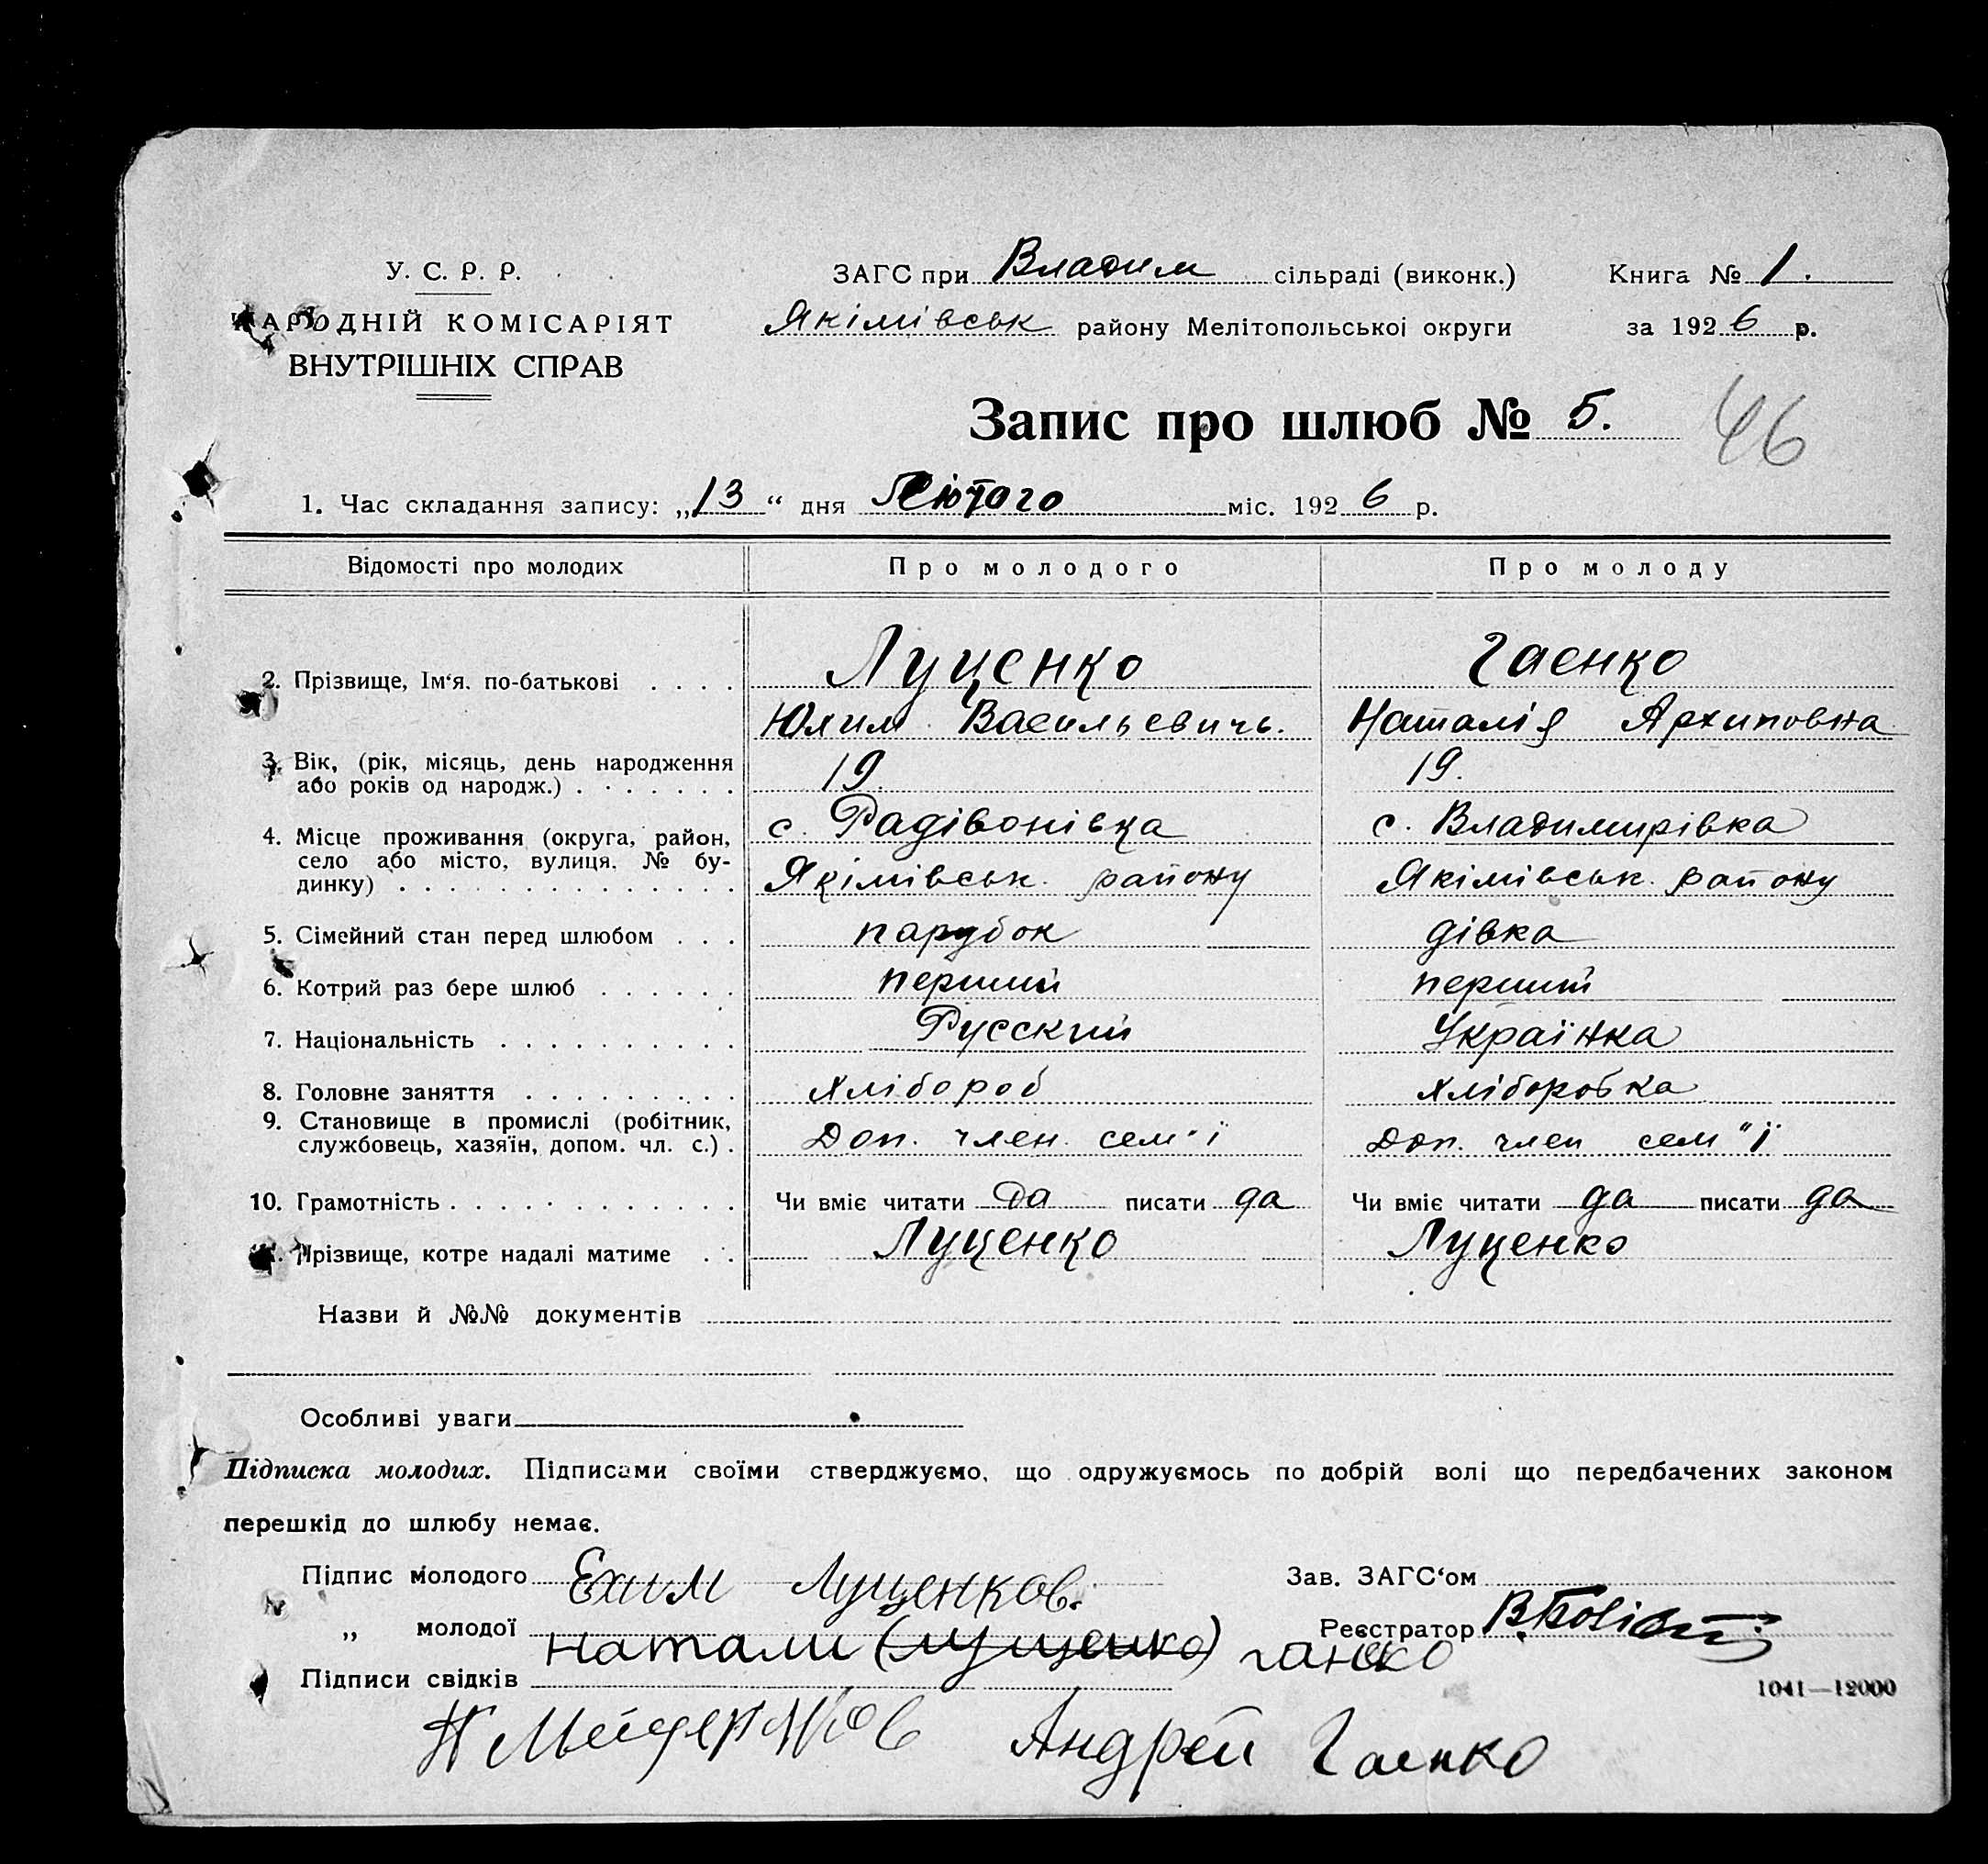 У. С. Р. Р.
НАРОДНІЙ КОМІСАРІЯТ
ВНУТРІШНІХ СПРАВ
ЗАГС при Владим сільраді (виконк.)
Якімівськ району Мелітопольської округи
Книга № 1.
за 1926 р.
Запис про шлюб № 5.
46
1. Час складання запису: „13“ дня Лютого міс. 1926 р.
Відомості про молодих Про молодого Про молоду
2. Прізвище, Ім‘я. по-батькові . . . . Луценко Гаенко
Юхим Васильевичь. Наталія Архиповна
3. Вік, (рік, місяць, день народження
або років од народж.) . . . . . . . 19. 19.
4. Місце проживання (округа, район, с. Радівонівка с. Владимирівка
село або місто, вулиця. № бу-
динку) . . . . . . . . . . . . . . Якімівськ. району Якімівськ. району
5. Сімейний стан перед шлюбом . . . парубок дівка
6. Котрий раз бере шлюб . . . . . . перший перший
7. Національність . . . . . . . . . . Русский Українка
8. Головне заняття . . . . . . . . . хлібороб хліборобка
9. Становище в промислі (робітник,
службовець, хазяїн, допом. чл. с.) . Доп. член. сем"ї Доп. член сем"ї
10. Грамотність . . . . . . . . . . . . Чи вміє читати да писати да Чи вміє читати да писати да
11. Прізвище, котре надалі матиме . . Луценко Луценко
Назви й №№ документів
Особливі уваги
Підписка молодих. Підписами своїми стверджуємо, що одружуємось по добрій волі що передбачених законом
перешкід до шлюбу немає.
Підпис молодого Ехим Луценков. Зав. ЗАГС‘ом
„ молодої Натали (луценко) ганеко Реєстратор
Підписи свідків
1041—12000
Андрей Гаенко